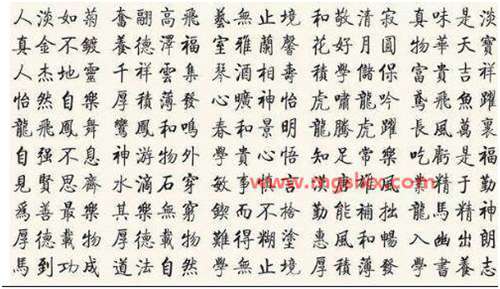 人淡如菊 奮翮高飛 藝無止境 和敬清寂 真味是淡
真金不鍍 養德澤福 室雅蘭馨 花好月圓 物華天寶
人杰地靈 千祥雲集 琴酒相壽 積學儲保 富貴吉祥
怡然自樂 厚積薄發 心曠神怡 虎嘯龍吟 鳶飛魚躍
龍飛鳳舞 鸞鳳和鳴 春和景明 龍騰虎躍 長風萬裏
自强不息 神游物外 學貴心悟 知足常樂 吃虧是福
見賢思齊 水滴石穿 敏事慎 雄風 精于勤
爲善最樂 其樂無窮 鍥而不捨 勤能補拙 龍馬精神
厚德載物 難得糊塗 惠風和暢 入幽出朗
馬到功成 道法自然 學無止境 厚積薄發 學書養志